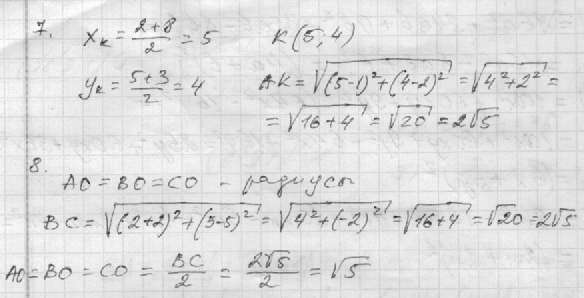 7. x_к = (2+8)/2 = 5 K(5,4)
y_к = (5+3)/2 = 4 AK = √((5-1)²+(4-2)²) = √(4²+2²) =
= √(16+4) = √20 = 2√5
8.
AO = BO = CO - радиусы
BC = √((2+2)²+(3-5)²) = √(4²+(-2)²) = √(16+4) = √20 = 2√5
AO = BO = CO = BC/2 = 2√5/2 = √5